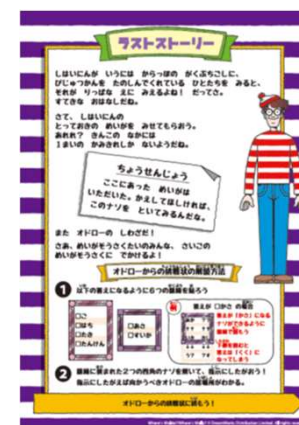 ラストストーリー
しはいにんが いうには からっぽの がくぶちごしに、
びじゅつかんを たのしんでくれている ひとたちを みると、
それが りっぱな えに みえるよね! だってさ。
すてきな おはなしだね。
さて、しはいにんの
とっておきの めいがを みせてもらおう。
あれれ? きんこの なかには
1まいの かみきれしか ないようだね。
ちょうせんじょう
ここにあった めいがは
いただいた。かえしてほしければ、
このナゾを といてみるんだな。
また オドローの しわざだ!
さあ、めいがそうさくたいのみんな、さいごの
めいがそうさくに でかけるよ!
オドローからの挑戦状の解読方法
1 以下の答えになるように6つの額縁を貼ろう
□こ
□はち
□たき
□たんけん
□あさ
□すいか
例
答えが □かさ の場合
答えが「かさ」になる
ナゾができるように
2 額縁に囲まれた2つの四角のナゾを解いて、指示にしたがおう!
指示にしたがえば向かうべきオドローの居場所がわかる。
オドローからの挑戦状に挑もう!